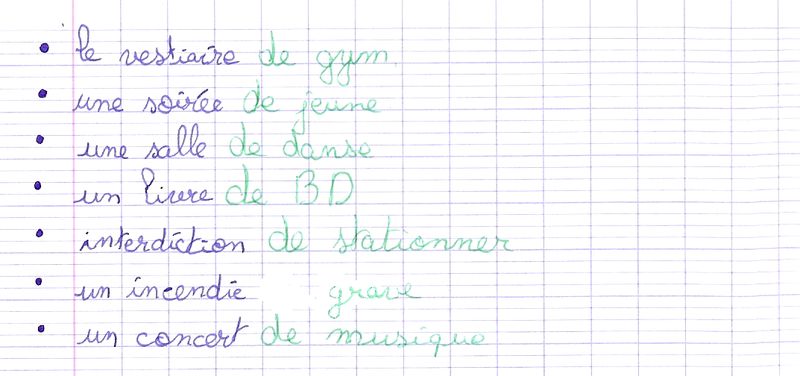 • le vestiaire de gym
• une soirée de jeune
• une salle de danse
• un livre de BD
• interdiction de stationner
• un incendie grave
• un concert de musique